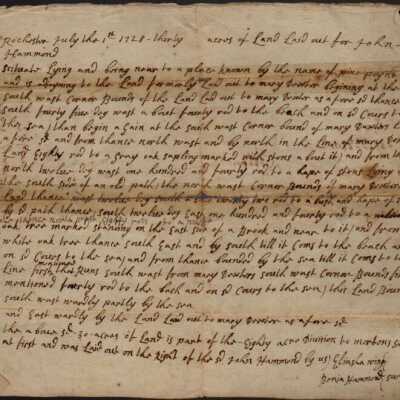 Rochester July the 1st 1728 - thirty acres of Land Laid out for John -
Hammond
scituate Lying and being near to a place known by the name of pine
and is adjoyning to the Land formerly Laid out to mary Dexter begining at the
south west Corner Bounds of the Land Laid out to mary Dexter as a fore sd thence
south fourty five deg west a bout fourty rod to the beach and on sd Cours to
the sea / than begin a Gain at the south west Corner bound of mary Dexters
a fore sd and from thance north west and by north in the Line of mary
Land Eighty rod to a Gray oak sapling marked with stons a bout it / and from
north twelve deg west one hundred and fourty rod to a heape of stons Lying
the south side of an old path / the north west Corner Bounds of mary Dexters
Land thance west twelve deg south two rod to a bush and heape of
by sd path thance south twelve deg East one hundred and fourty rod to a
oak tree marked standing on the East side of a Brook and near to it / and from
white oak tree thance south East and by south till it Coms to the beach
on sd Cours to the sea / and from thance bounded by the sea till it Coms to
Line first that Runs south west from mary Dexters south west Corner Bounds
mentioned fourty rod to the beach and on sd Cours to the sea / this Land
south west wardly partly by the sea
and East wardly by the Land Laid out to mary Dexter as a fore sd
the a bove sd 30 acres of Land is part of the Eighty acre Division to
at first and was Laid out on the Right of the sd John Hammond by us / Elisha wing
Benja Hammond